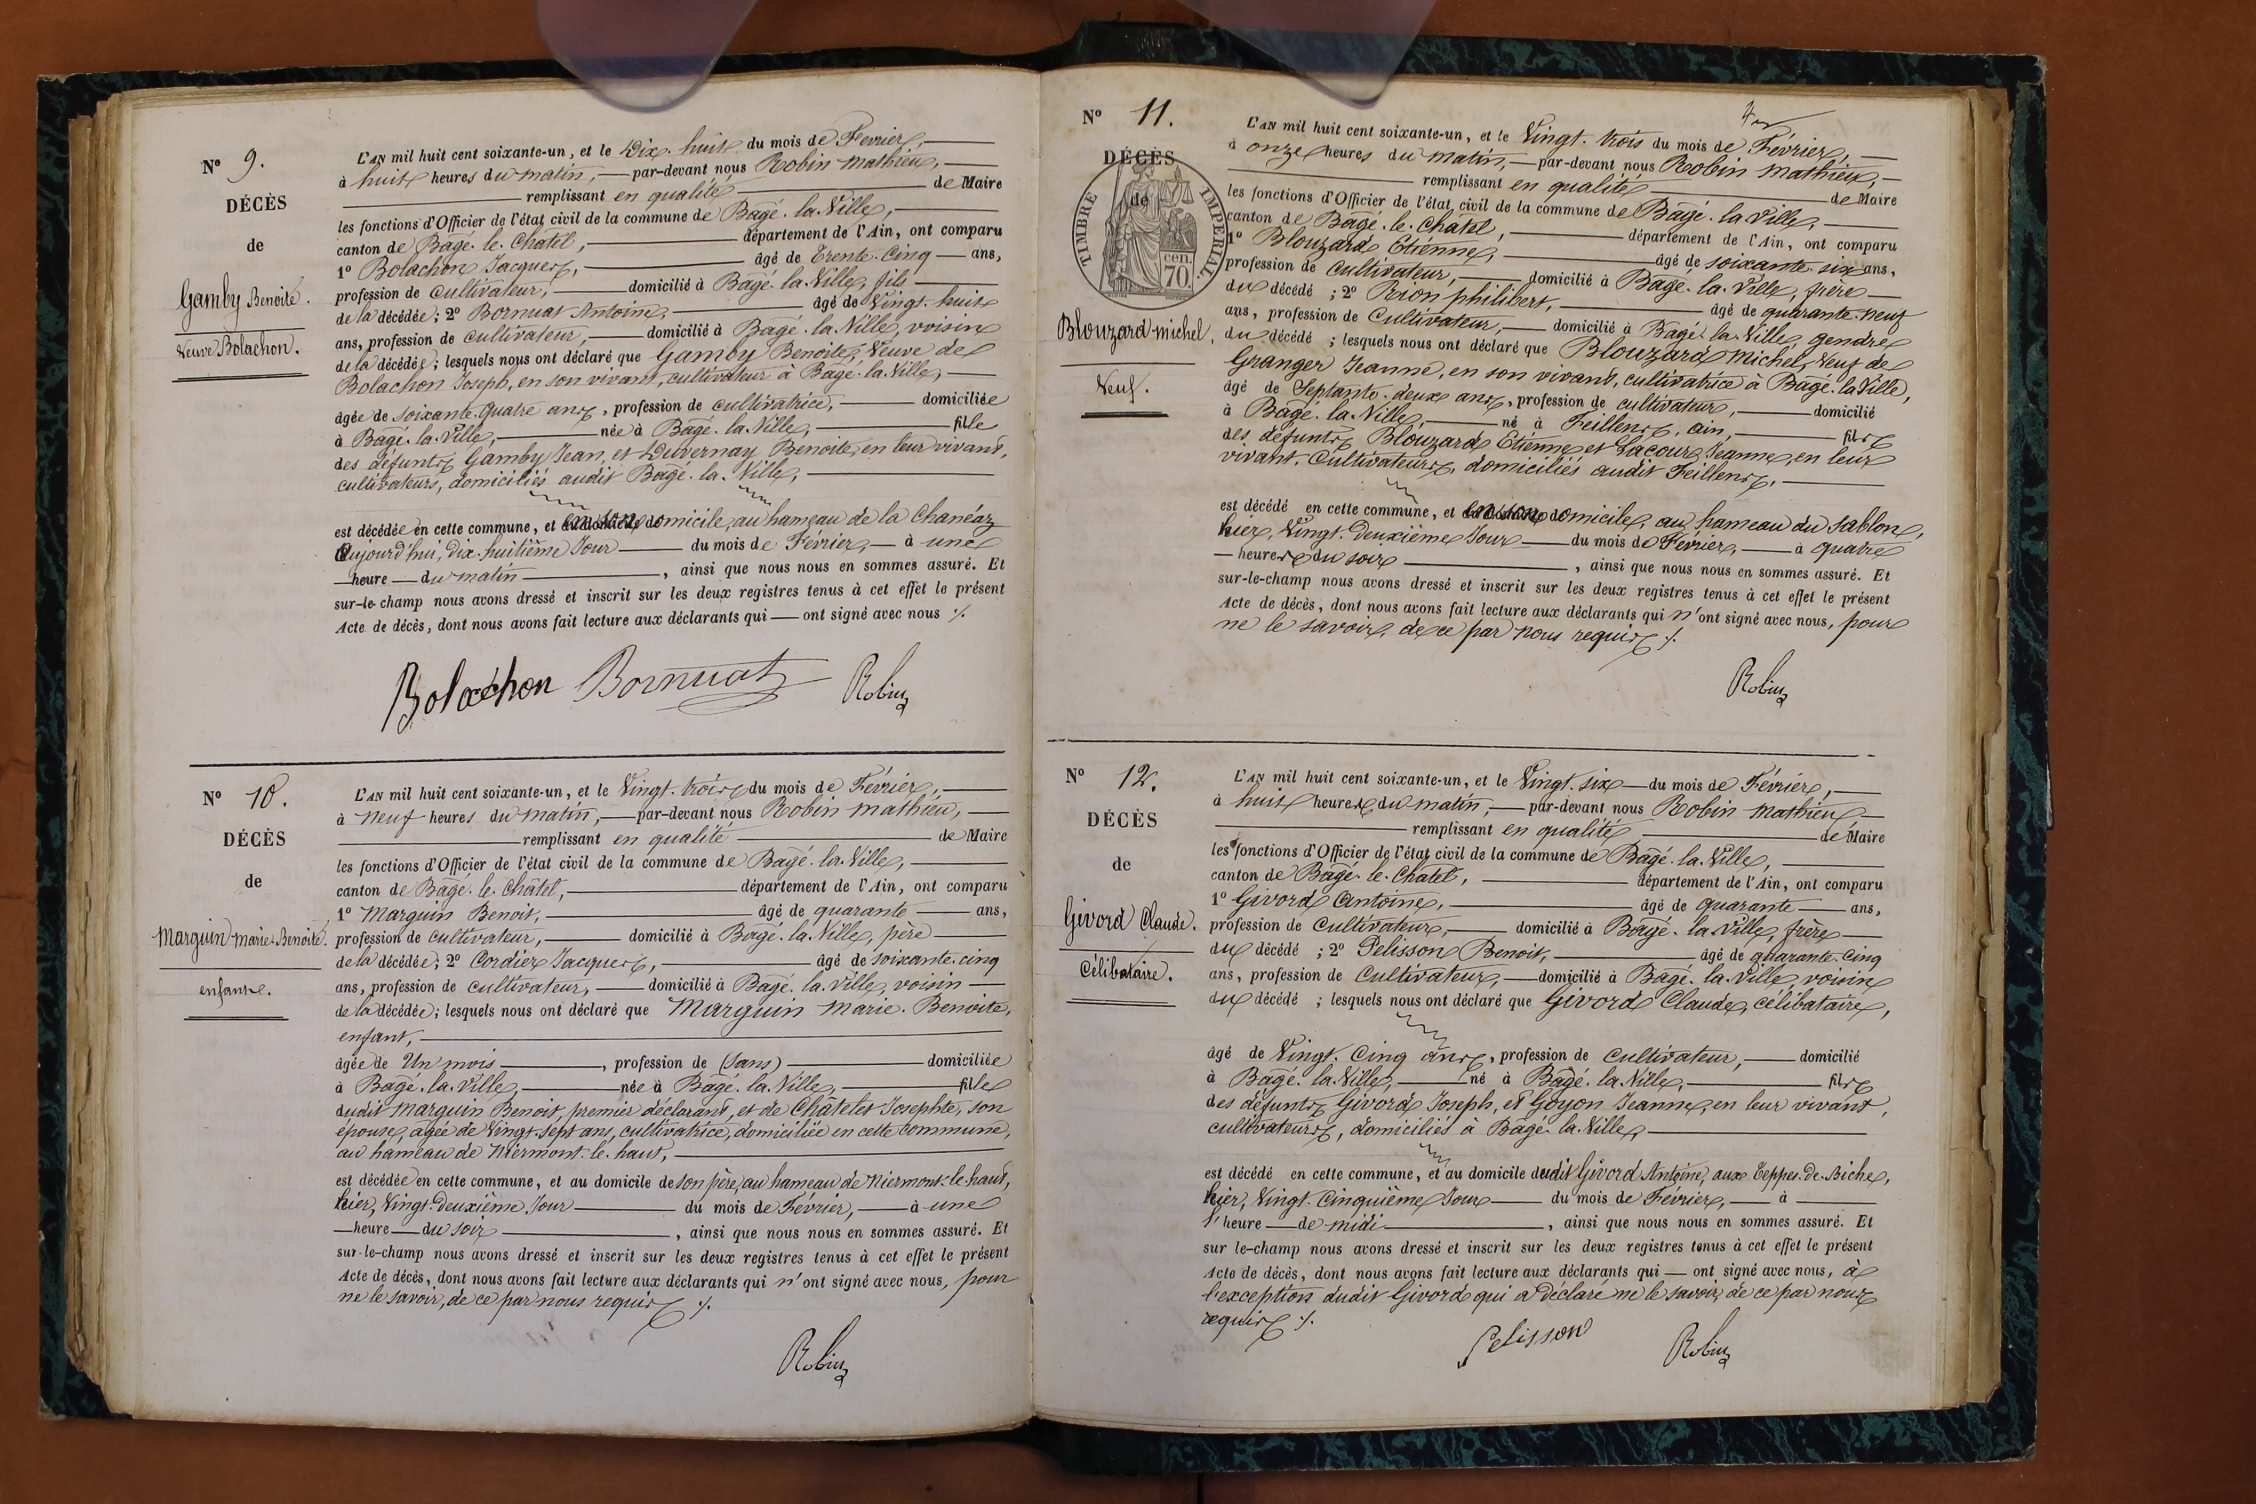 N° 9.
DÉCÈS
de
Gamby Benoite.
Veuve Bolachon.
L'AN mil huit cent soixante-un, et le Dix-huit du mois de Février,
à huit heures du matin, par-devant nous Robin Mathieu,
remplissant en qualité de Maire
les fonctions d'Officier de l'état civil de la commune de Bâgé-la-Ville,
canton de Bâgé-le-Châtel, département de l'Ain, ont comparu
1° Bolachon Jacques, âgé de Trente-Cinq ans,
profession de cultivateur, domicilié à Bâgé-la-Ville, fils
de la décédée; 2° Bornuat Antoine, âgé de Vingt-huit
ans, profession de cultivateur, domicilié à Bâgé-la-Ville, voisin
de la décédée; lesquels nous ont déclaré que Gamby Benoite, Veuve de
Bolachon Joseph, en son vivant, cultivateur à Bâgé-la-Ville,
âgée de soixante-quatre ans, profession de cultivatrice, domiciliée
à Bâgé-la-Ville, née à Bâgé-la-Ville, fille
des défunts Gamby Jean, et Duvernay Benoite, en leur vivant,
cultivateurs, domiciliés audit Bâgé-la-Ville,
est décédée en cette commune, et en son domicile, au hameau de la Chanéaz
Aujourd'hui, dix-huitième Jour du mois de Février, à une
heure du matin, ainsi que nous nous en sommes assuré. Et
sur-le-champ nous avons dressé et inscrit sur les deux registres tenus à cet effet le présent
Acte de décès, dont nous avons fait lecture aux déclarants qui ont signé avec nous ./.
Bolachon Bornuat Robin
N° 10.
DÉCÈS
de
Marguin Marie-Benoite.
enfant.
L'AN mil huit cent soixante-un, et le Vingt-trois du mois de Février,
à neuf heures du matin, par-devant nous Robin Mathieu,
remplissant en qualité de Maire
les fonctions d'Officier de l'état civil de la commune de Bâgé-la-Ville,
canton de Bâgé-le-Châtel, département de l'Ain, ont comparu
1° Marguin Benoit, âgé de quarante ans,
profession de cultivateur, domicilié à Bâgé-la-Ville, père
de la décédée; 2° Cordier Jacques, âgé de soixante-cinq
ans, profession de cultivateur, domicilié à Bâgé-la-Ville, voisin
de la décédée; lesquels nous ont déclaré que Marguin Marie-Benoite,
enfant,
âgée de Un mois, profession de (sans) domiciliée
à Bâgé-la-Ville, née à Bâgé-la-Ville, fille
dudit Marguin Benoit, premier déclarant, et de Châtelet Josephte, son
épouse, âgée de Vingt-sept ans, cultivatrice, domiciliée en cette commune,
au hameau de Niermont-le-haut,
est décédée en cette commune, et au domicile de son père, au hameau de Niermont-le-haut,
hier, Vingt-deuxième Jour du mois de Février, à une
heure du soir, ainsi que nous nous en sommes assuré. Et
sur-le-champ nous avons dressé et inscrit sur les deux registres tenus à cet effet le présent
Acte de décès, dont nous avons fait lecture aux déclarants qui n'ont signé avec nous, pour
ne le savoir, de ce par nous requis ./.
Robin
N° 11.
DÉCÈS
de
TIMBRE IMPERIAL
70 cen.
Blouzard Michel,
Veuf.
L'AN mil huit cent soixante-un, et le Vingt-trois du mois de Février,
à onze heures du matin, par-devant nous Robin Mathieu,
remplissant en qualité de Maire
les fonctions d'Officier de l'état civil de la commune de Bâgé-la-Ville,
canton de Bâgé-le-Châtel, département de l'Ain, ont comparu
1° Blouzard Etienne, âgé de soixante-six ans,
profession de cultivateur, domicilié à Bâgé-la-Ville, frère
du décédé; 2° Rion philibert, âgé de quarante-neuf
ans, profession de Cultivateur, domicilié à Bâgé-la-Ville, gendre
du décédé; lesquels nous ont déclaré que Blouzard Michel, Veuf de
Granger Jeanne, en son vivant, cultivatrice à Bâgé-la-Ville,
âgé de Septante-deux ans, profession de cultivateur, domicilié
à Bâgé-la-Ville, né à Feillens, ain, fils
des défunts Blouzard Etienne et Lacour Jeanne, en leur
vivant, Cultivateurs, domiciliés audit Feillens,
est décédé en cette commune, et en son domicile, au hameau du Sablon,
hier, Vingt-Deuxième Jour du mois de Février, à quatre
heures du soir, ainsi que nous nous en sommes assuré. Et
sur-le-champ nous avons dressé et inscrit sur les deux registres tenus à cet effet le présent
Acte de décès, dont nous avons fait lecture aux déclarants qui n'ont signé avec nous, pour
ne le savoir, de ce par nous requis ./.
Robin
N° 12.
DÉCÈS
de
Givord Claude.
Célibataire.
L'AN mil huit cent soixante-un, et le Vingt-six du mois de Février,
à huit heures du matin, par-devant nous Robin Mathieu
remplissant en qualité de Maire
les fonctions d'Officier de l'état civil de la commune de Bâgé-la-Ville,
canton de Bâgé-le-Châtel, département de l'Ain, ont comparu
1° Givord Antoine, âgé de quarante ans,
profession de Cultivateur, domicilié à Bâgé-la-Ville, frère
du décédé; 2° Pelisson Benoit, âgé de quarante-cinq
ans, profession de Cultivateur, domicilié à Bâgé-la-Ville, voisin
du décédé; lesquels nous ont déclaré que Givord Claude, célibataire,
âgé de Vingt-Cinq ans, profession de cultivateur, domicilié
à Bâgé-la-Ville, né à Bâgé-la-Ville, fils
des défunts Givord Joseph, et Goyon Jeanne, en leur vivant,
cultivateurs, domiciliés à Bâgé-la-Ville,
est décédé en cette commune, et au domicile dudit Givord Antoine, aux Teppes-de-Biche,
hier, Vingt-Cinquième Jour du mois de Février, à
l'heure de midi, ainsi que nous nous en sommes assuré. Et
sur le-champ nous avons dressé et inscrit sur les deux registres tenus à cet effet le présent
Acte de décès, dont nous avons fait lecture aux déclarants qui ont signé avec nous, à
l'exception dudit Givord qui a déclaré ne le savoir, de ce par nous
requis ./.
Pelisson Robin